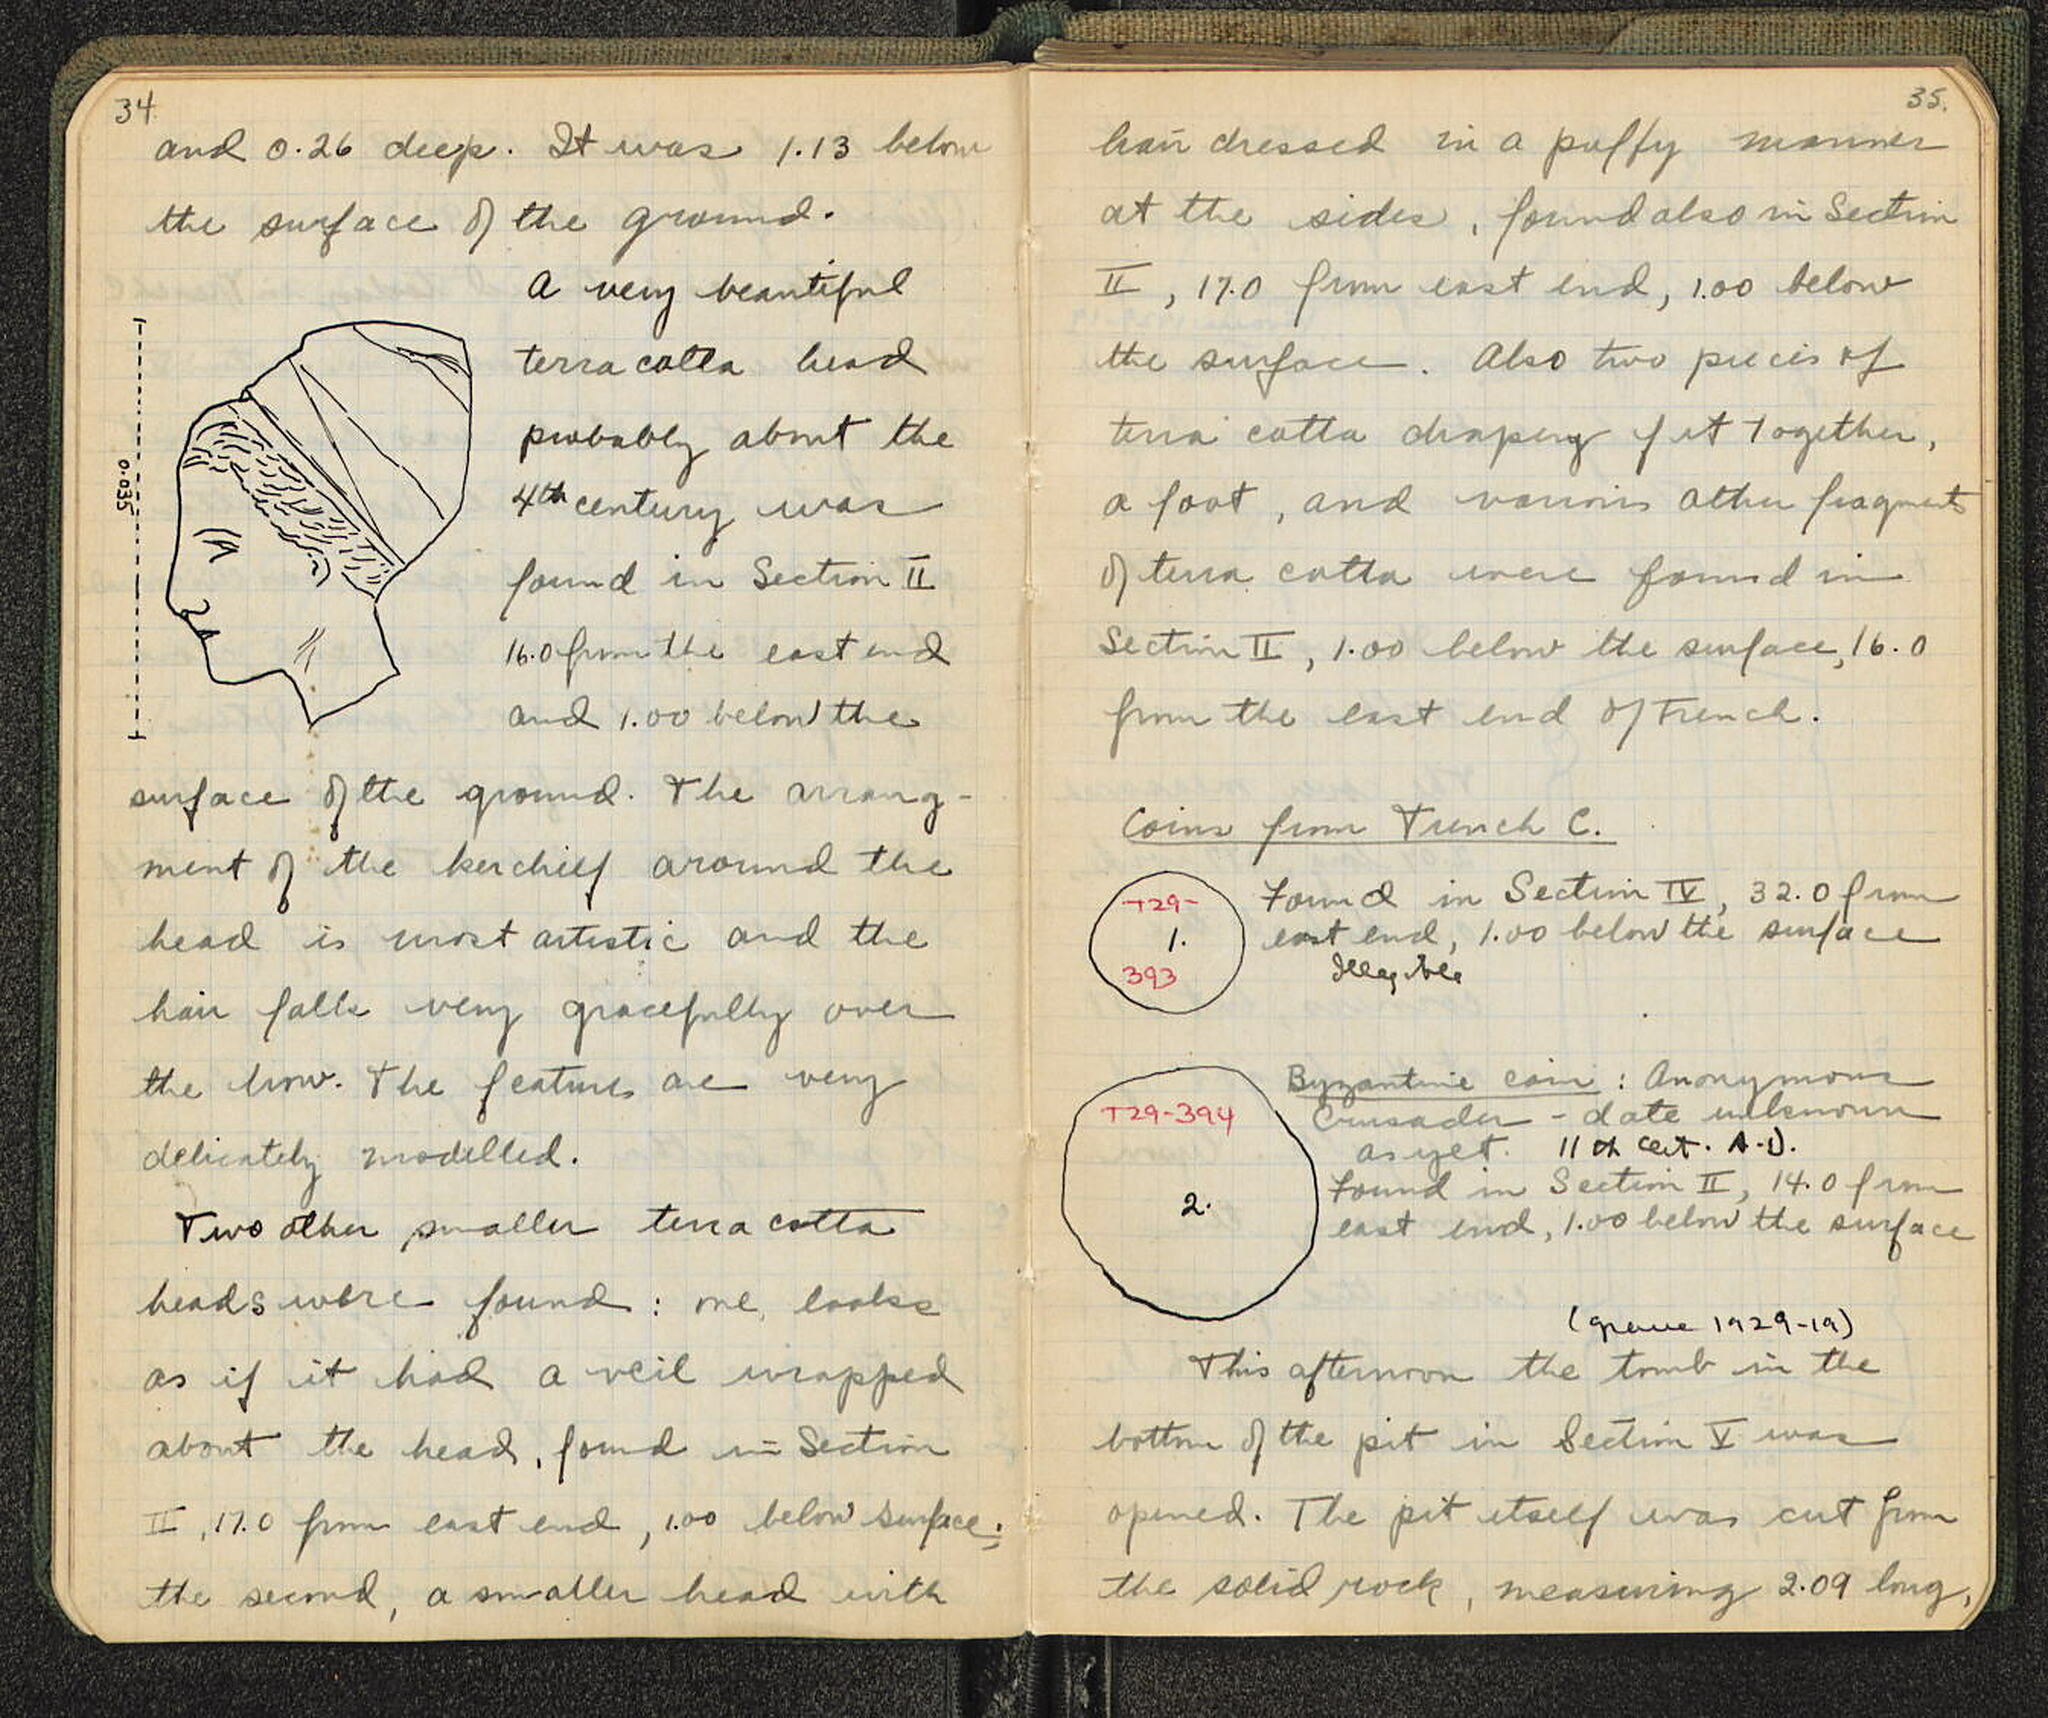 34.
and 0.26 deep. It was 1.13 below
the surface of the ground.
A very beautiful
terra cotta head
probably about the
4th century was
found in Section II
16.0 from the east end
and 1.00 below the
0.035
surface of the ground. The arrang-
ment of the kerchief around the
head is most artistic and the
hair falls very gracefully over
the brow. The features are very
delicately modelled.
Two other smaller terra cotta
heads were found: one looks
as if it had a veil wrapped
about the head, found in Section
II, 17.0 from east end, 1.00 below surface;
the second, a smaller head with
35.
hair dressed in a puffy manner
at the sides, found also in Section
II, 17.0 from east end, 1.00 below
the surface. Also two pieces of
terra cotta drapery fit together,
a foot, and various other fragments
of terra cotta were found in
Section II, 1.00 below the surface, 16.0
from the east end of Trench.
Coins from Trench C.
T29-
1.
393
Found in Section IV, 32.0 from
east end, 1.00 below the surface
Illegible
T29-394
2.
Byzantine coin: Anonymous
Crusader - date unknown
as yet. 11th cent. A.D.
Found in Section II, 14.0 from
east end, 1.00 below the surface
(grave 1929-19)
This afternoon the tomb in the
bottom of the pit in Section V was
opened. The pit itself was cut from
the solid rock, measuring 2.09 long,